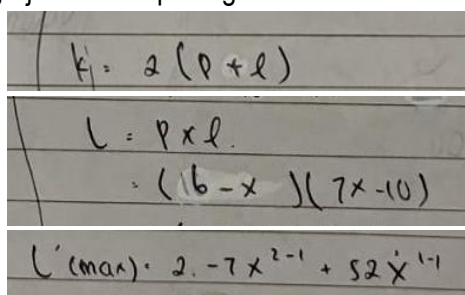 Kj = 2 (p + l)
L = p x l.
= (16 - x) (7x - 10)
L' (max) = 2. -7x²⁻¹ + 52x¹⁻¹